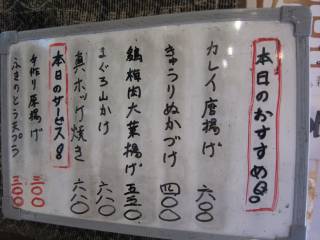 本日のおすすめ
カレイ唐揚げ 六八〇
きゅうりぬかづけ 四〇〇
鶏梅肉大葉揚げ 五五〇
まぐろ山かけ 六八〇
真ホッケ焼き 六八〇
本日のサービス
手作り厚揚げ 三〇〇
ふきのとう天ぷら 三〇〇